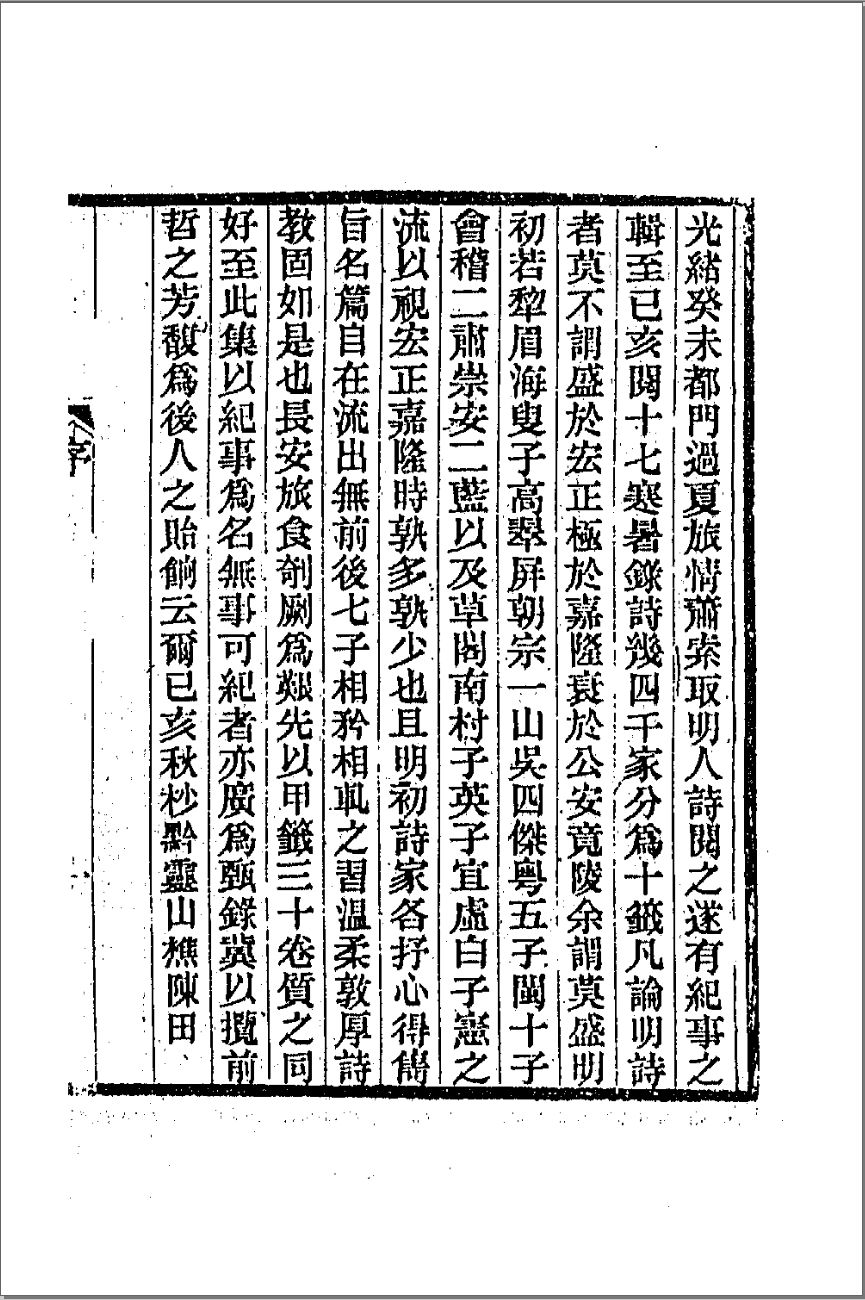 光緒癸未都門過夏旅情蕭索取明人詩閱之遂有紀事之
輯至已亥閱十七寒暑錄詩幾四千家分爲十籤凡論明詩
者莫不謂盛於宏正極於嘉隆衰於公安竟陵余謂莫盛明
初若犁眉海叟子高翠屏朝宗一山吳四傑粵五子閩十子
會稽二肅崇安二藍以及草閣南村子英子宜虛白子憲之
流以視宏正嘉隆時孰多孰少也且明初詩家各抒心得雋
旨名篇自在流出無前後七子相矜相軋之習溫柔敦厚詩
教固如是也長安旅食剞劂爲艱先以甲籤三十卷質之同
好至此集以紀事爲名無事可紀者亦廣爲甄錄冀以攬前
哲之芳馥爲後人之貽餉云爾已亥秋杪黔靈山樵陳田
序